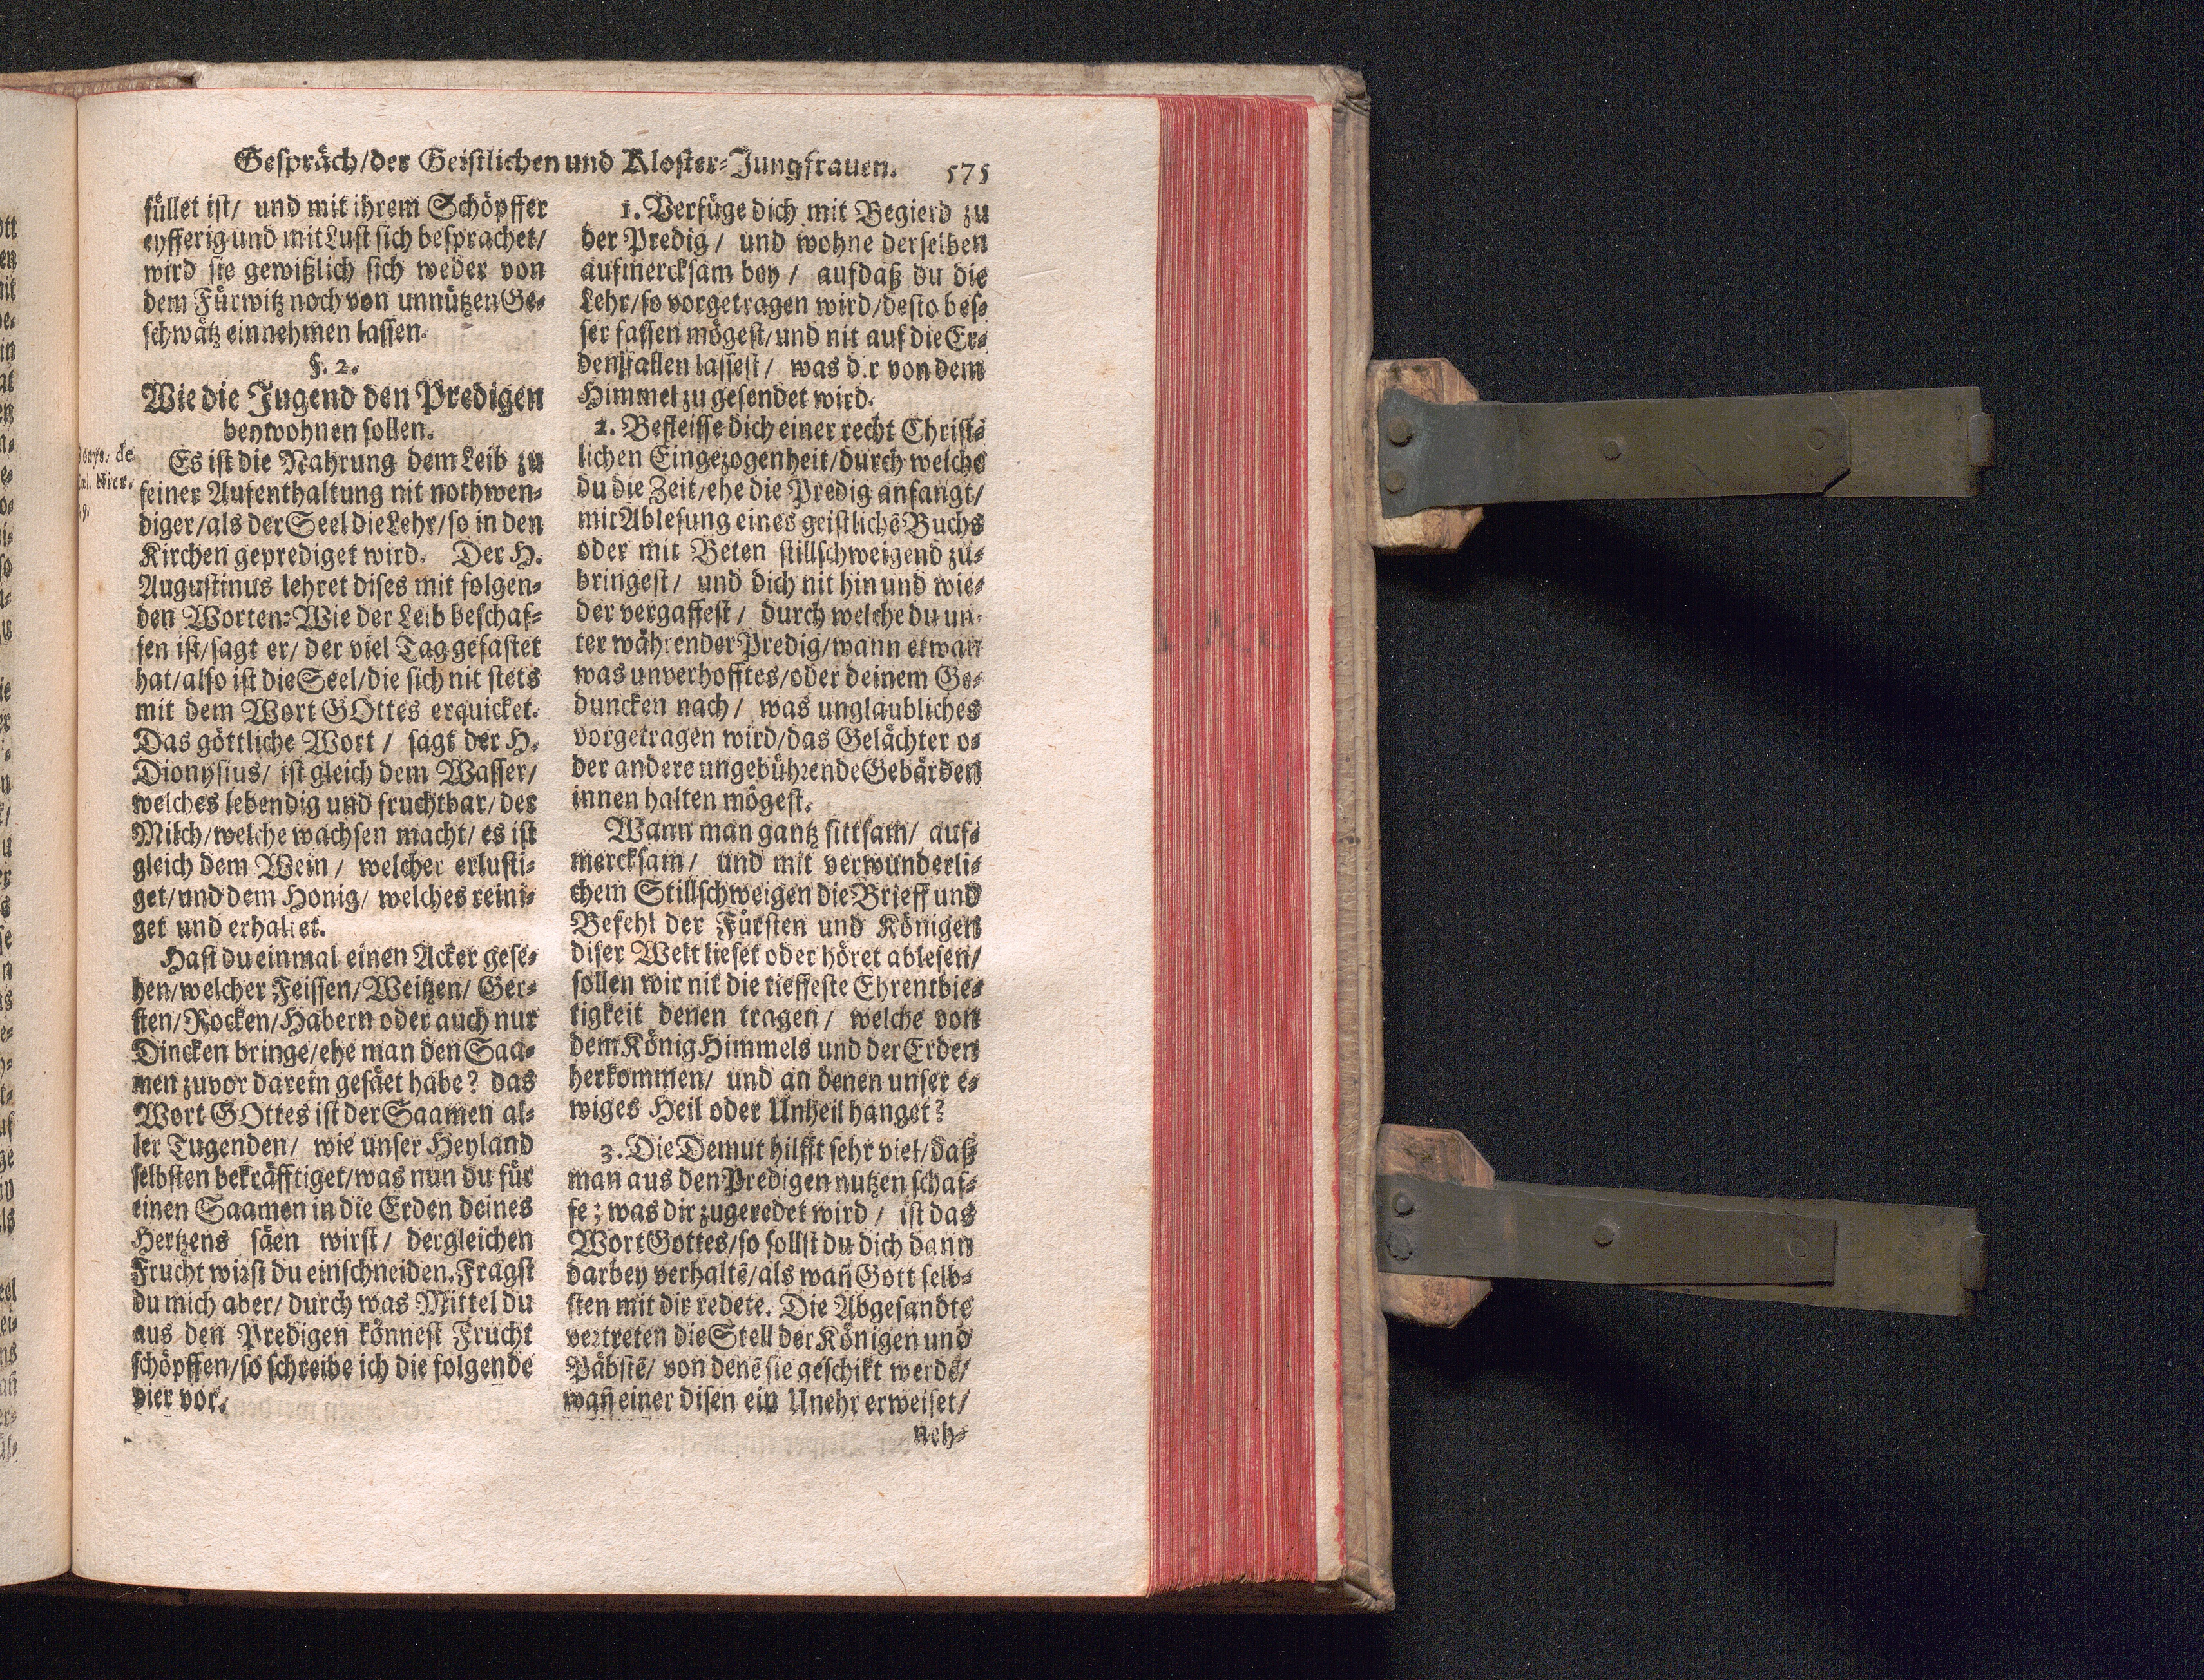 Gespräch/der Geistlichen und Kloster-Jungfrauen. 575
füllet ist/ und mit ihrem Schöpffer
eyfferig und mit Lust sich besprachet/
wird sie gewißlich sich weder von
dem Fürwitz noch von unnützen Ge-
schwätz einnehmen lassen.
§. 2.
Wie die Jugend den Predigen
beywohnen sollen.
Es ist die Nahrung dem Leib zu
seiner Aufenthaltung nit nothwen-
diger/als der Seel die Lehr/so in den
Kirchen geprediget wird. Der H.
Augustinus lehret dises mit folgen-
den Worten: Wie der Leib beschaf-
fen ist/sagt er/ der viel Tag gefastet
hat/also ist die Seel/die sich nit stets
mit dem Wort GOttes erquicket.
Das göttliche Wort/ sagt der H.
Dionysius/ ist gleich dem Wasser/
welches lebendig und fruchtbar/der
Milch/welche wachsen macht/ es ist
gleich dem Wein/ welcher erlusti-
get/und dem Honig/ welches reini-
get und erhaltet.
Hast du einmal einen Acker gese-
hen/welcher Feissen/Weitzen/ Ger-
sten/Rocken/Habern oder auch nur
Dincken bringe/ehe man den Saa-
men zuvor darein gesäet habe? das
Wort GOttes ist der Saamen al-
ler Tugenden/ wie unser Heyland
selbsten bekräfftiget/was nun du für
einen Saamen in die Erden deines
Hertzens säen wirst/ dergleichen
Frucht wirst du einschneiden. Fragst
du mich aber/ durch was Mittel du
aus den Predigen könnest Frucht
schöpffen/so schreibe ich die folgende
vier vor.
de
Nier.
1. Verfüge dich mit Begierd zu
der Predig/ und wohne derselben
aufmercksam bey/ aufdaß du die
Lehr/so vorgetragen wird/desto bes-
ser fassen mögest/und nit auf die Er-
den fallen lassest/ was d.r von dem
Himmel zu gesendet wird.
2. Befleisse dich einer recht Christ-
lichen Eingezogenheit/durch welche
du die Zeit/ehe die Predig anfangt/
mit Ablesung eines geistlichē Buchs
oder mit Beten stillschweigend zu-
bringest/ und dich nit hin und wie-
der vergaffest/ durch welche du un-
ter währender Predig/wann etwan
was unverhofftes/oder deinem Ge-
duncken nach/ was unglaubliches
vorgetragen wird/das Gelächter o-
der andere ungebührende Gebärden
innen halten mögest.
Wann man gantz sittsam/ auf-
mercksam/ und mit verwunderli-
chem Stillschweigen die Brieff und
Befehl der Fürsten und Königen
diser Welt lieset oder höret ablesen/
sollen wir nit die tieffeste Ehrentbie-
tigkeit denen tragen/ welche von
dem König Himmels und der Erden
herkommen/ und an denen unser e-
wiges Heil oder Unheil hanget?
3. Die Demut hilfft sehr viel/daß
man aus den Predigen nutzen schaf-
fe; was dir zugeredet wird/ ist das
Wort Gottes/so sollst du dich dann
darbey verhaltē/als wañ Gott selb-
sten mit dir redete. Die Abgesandte
vertreten die Stell der Königen und
Päbstē/ von denē sie geschikt werdē/
wañ einer disen ein Unehr erweiset/
neh-